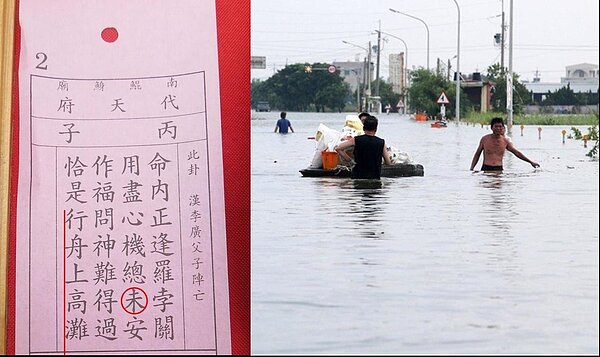 2
南鯤鯓廟
代天府
丙子
此卦 漢李廣父子陣亡
命內正逢羅孛關
用盡心機總未安
作福問神難得過
恰是行舟上高灘